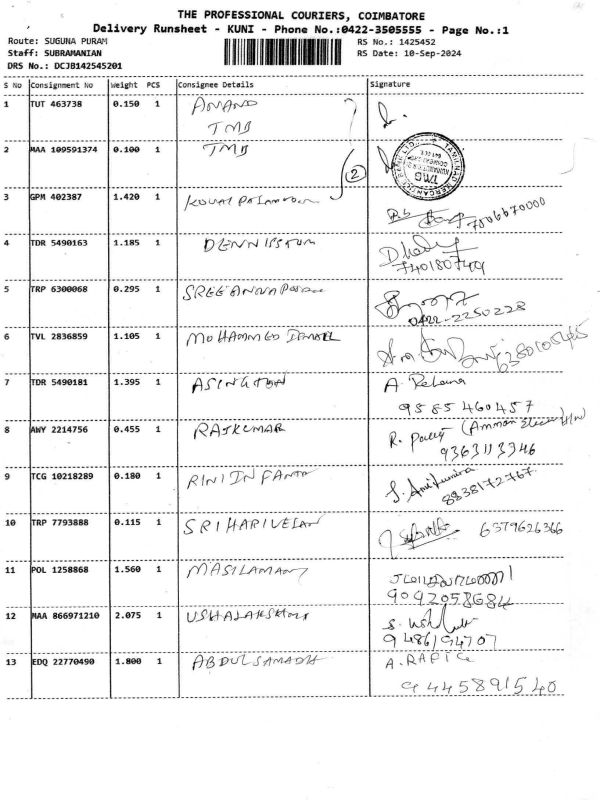 THE PROFESSIONAL COURIERS, COIMBATORE
Delivery Runsheet - KUNI - Phone No.:0422-3505555 - Page No.:1
Route: SUGUNA PURAM
RS No.: 1425452
Staff: SUBRAMANIAN
RS Date: 10-Sep-2024
DRS No.: DCJB142545201
S No Consignment No Weight PCS Consignee Details Signature
1 TUT 463738 0.150 1 ANAND
TMB
2 MAA 109591374 0.100 1 TMB
2
3 GPM 402387 1.420 1
7006670000
4 TDR 5490163 1.185 1
740180749
5 TRP 6300068 0.295 1 SREE ANNAPOORNA
0422-2250228
6 TVL 2836859 1.105 1 MOHAMMED ISMAIL
7 TDR 5490181 1.395 1 ASINGTON A. Rehana
9585460457
8 AWY 2214756 0.455 1 RAJKUMAR
9363113346
9 TCG 10218289 0.180 1 RINI INFANTA
8838172767
10 TRP 7793888 0.115 1 SRIHARIVELAN 6379626366
11 POL 1258868 1.560 1 MASILAMANY
9092058684
12 MAA 866971210 2.075 1 USHALAKSHMI
9486194707
13 EDQ 22770490 1.800 1 ABDULSAMADH A. RAFIQ
9445891540